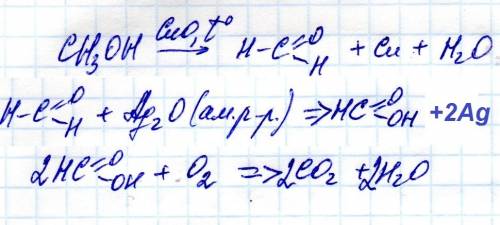 CH₃OH CuO, t° → H-C=O H + Cu + H₂O
H-C=O H + Ag₂O (ам.р-р.) ⇒ HC=O OH +2Ag
2HC=O OH + O₂ ⇒ 2CO₂ + 2H₂O